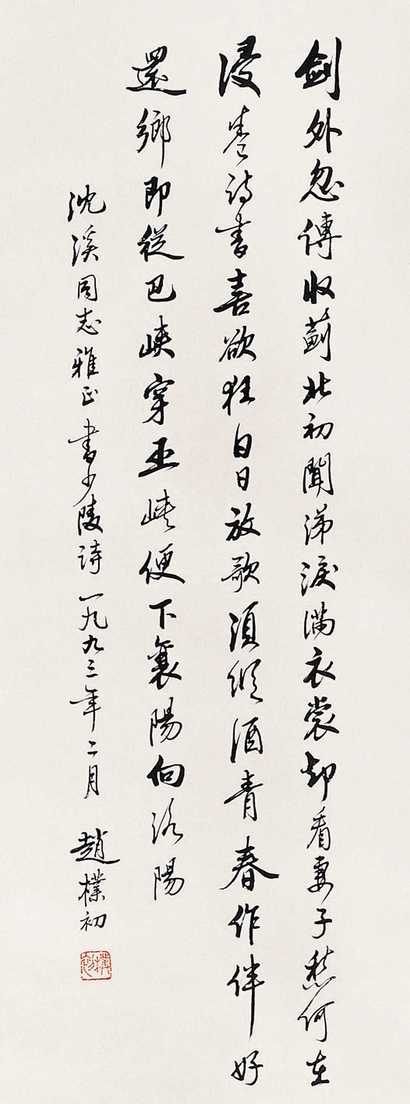 劍外忽傳收薊北初聞涕淚滿衣裳却看妻子愁何在
漫卷詩書喜欲狂白日放歌須縱酒青春作伴好
還鄉即從巴峽穿巫峽便下襄陽向洛陽
沈溪同志雅正書少陵詩一九九三年二月 趙樸初